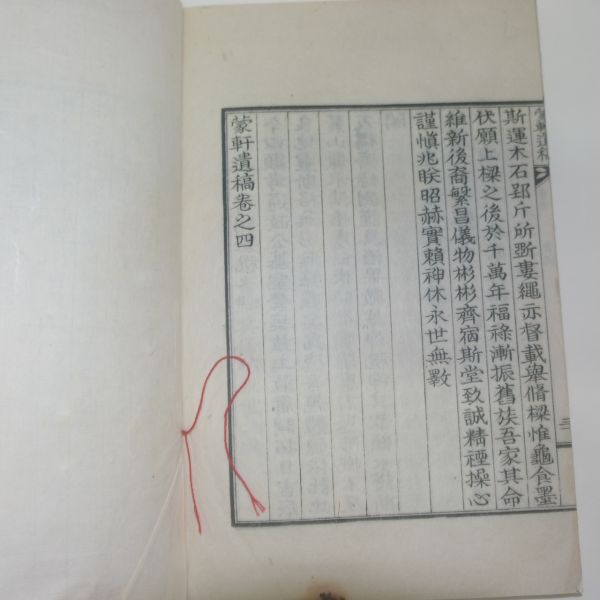 蒙軒遺稿
斯運木石郢斤所斲婁繩亦督載舉脩樑惟龜食墨
伏願上樑之後於千萬年福祿漸振舊族吾家其命
維新後裔繁昌儀物彬彬齊宿斯堂致誠精禋操心
謹愼兆朕昭赫實賴神休永世無斁
蒙軒遺稿卷之四